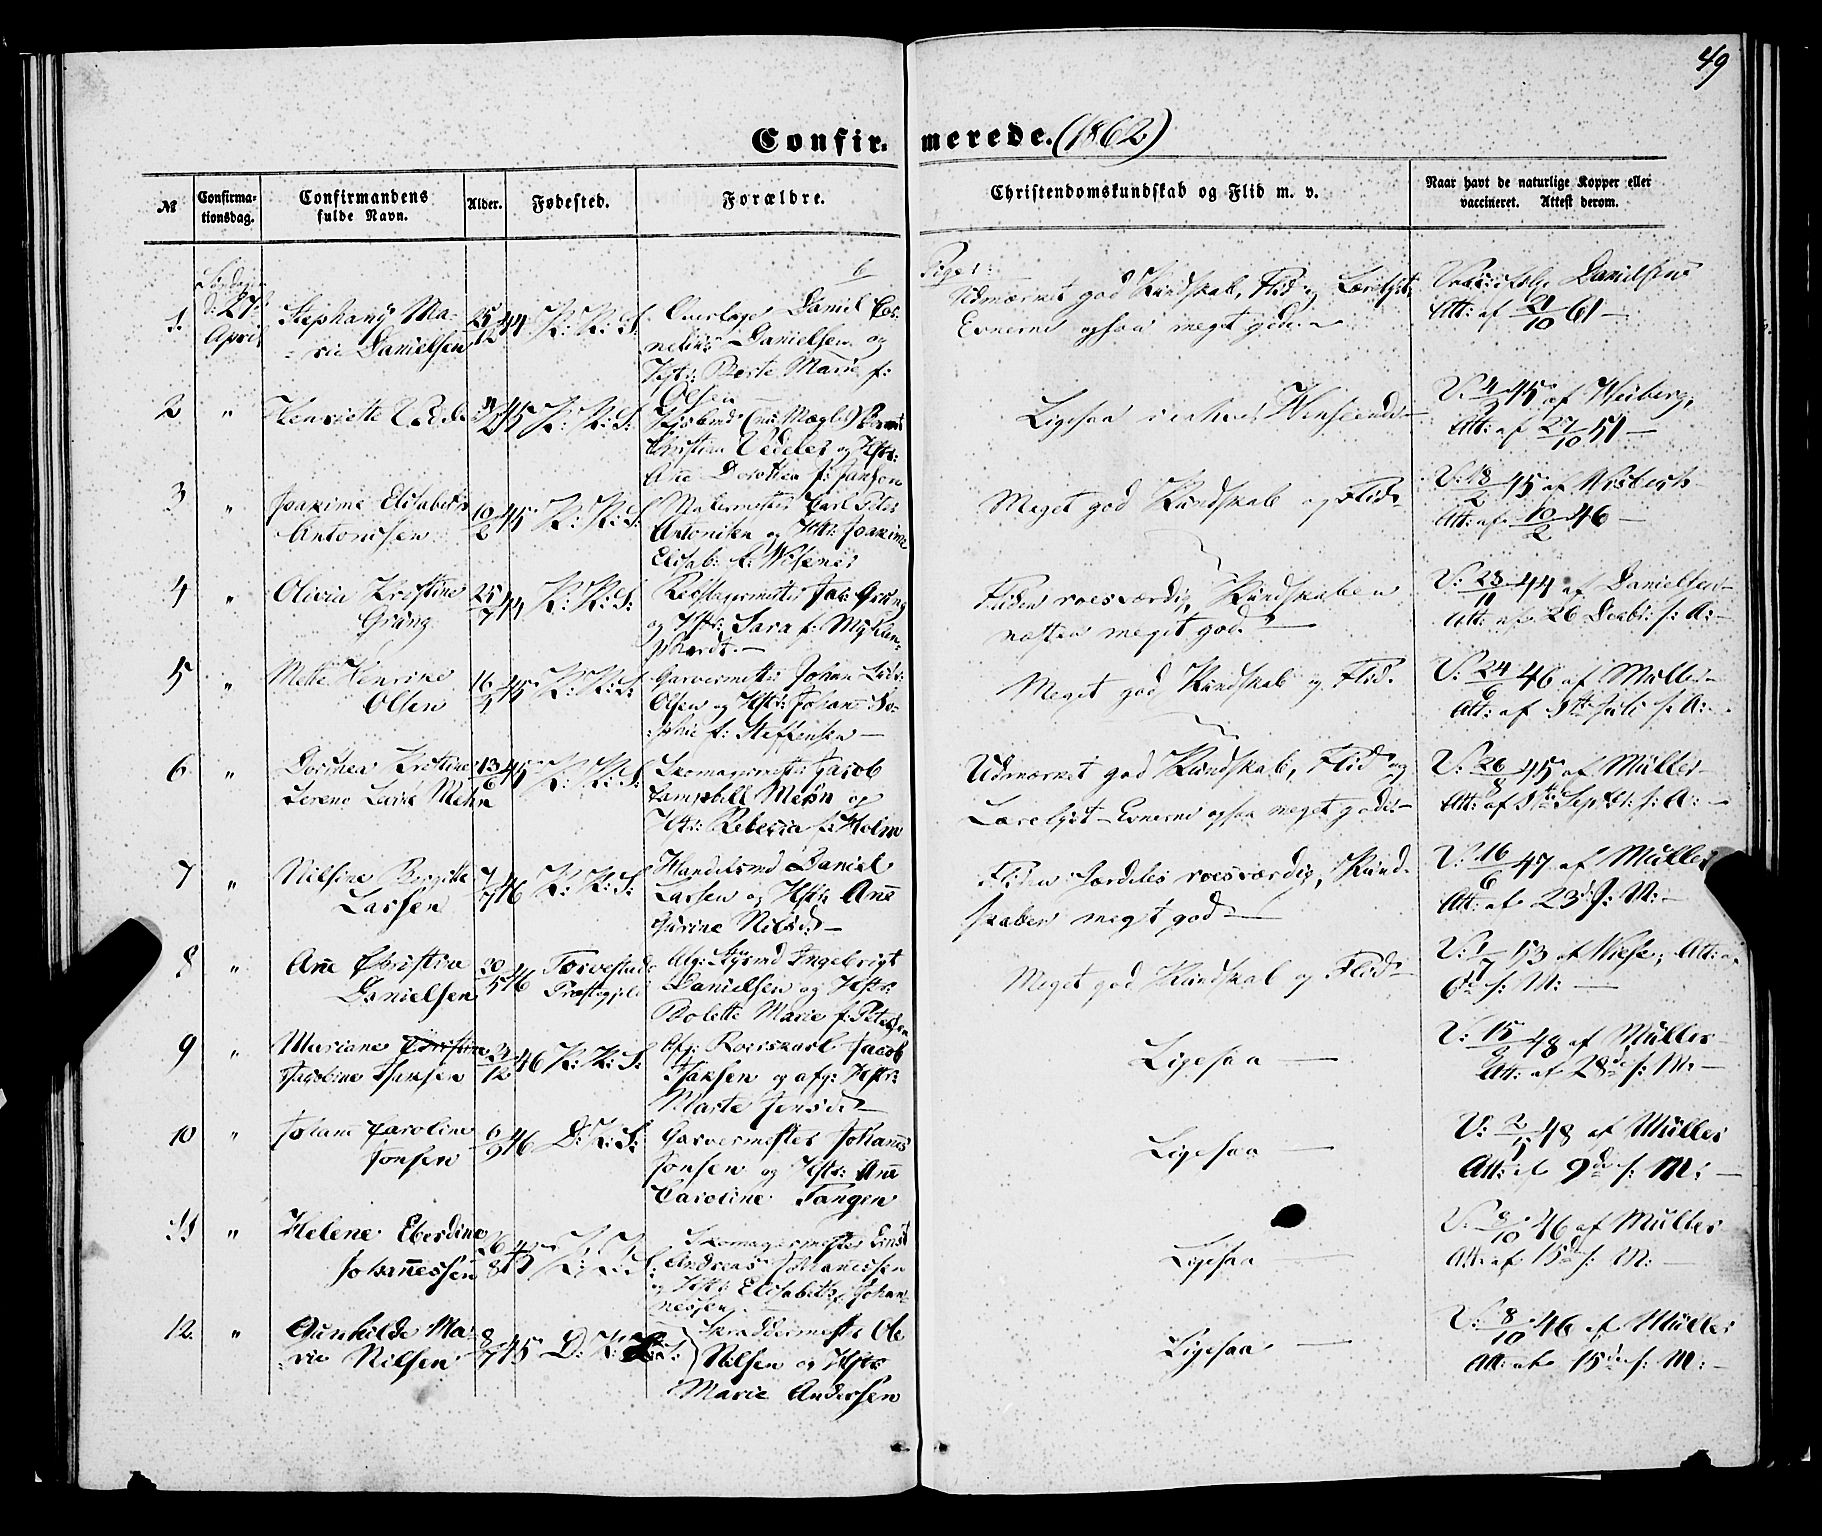 49
Confirmerede. (1862)
№ Confirmationsdag. Confirmandens fulde Navn. Alder. Fødested. Forældre. Christendomskundskab og Flid m. v. Naar havt de naturlige Kopper eller vaccineret. Attest derom.
Piger:
1. d: 27 April Stephany Ma-
rie Danielsen 25/12 44 K: K: S: Daniel Cor-
nelius Danielsen og
Hstr: Marie f:
Olsen
Udmærket god Kundskab, Flid og
Evnerne ogsaa meget gode.
Danielsen
Att: af 21/10 61
2 " Henriette 45 K: K: S:
Christian og Hstr:
Ane Dorothea f: Jansen
Ligesaa
V: 45 af
Att: af 27/10 51
3 " Joakime Elisabeth
Antonisen 10/2 45 K: K: S: Carl
Antonisen og Hstr: Joakime
Elisab: f:
Meget god Kundskab og Flid
V: 18/2 45 af
Att: af 10/2 46
4 " Olivia Kristine
Grung 25/7 44 K: K: S: Rebslagermester Jak: Grung
og Hstr: Sara f:
Fliden roesværdig, Kundskaben
næsten meget god
V: 23/11 44 af Danielsen
Att: af 26 Decbr: s: A:
5 " Mette Henrine
Olsen 16/4 45 K: K: S: Garvermester Johan
Olsen og Hstr: Johane So-
phie f: Steffensen
Meget god Kundskab og Flid.
V: 24/6 46 af Müller
Att: af Juli s: A:
6. " Dorthea Kristine
Mehn 13/6 45 K: K: S: Skomagermester Jacob
Mehn og
Hstr: Rebecca f: Holm
Udmærket god Kundskab, Flid og
Evnerne ogsaa meget gode
V: 26/8 45 af Müller
Att: af Septbr: s: A:
7 " Nilsine Bergitte
Larsen 7/7 46 K: K: S: Handelsmd Daniel
Larsen og Hstr: Ane
Gurine Nilsd:
Fliden særdeles roesværdig, Kund-
skaben meget god
V: 16/6 47 af Müller
Att: af 23d s: M:
8 " Ane Christine
Danielsen 30/5 46 Torvestad
Præstegjeld Afg: Ingebrigt
Danielsen og Hstr:
Bolette Marie f: Petersen
Meget god Kundskab og Flid
V: 1/7 53 af Att: af
6te s: M:
9 " Mariane
Jacobine Isaksen 46 K: K: S: Afg: Roerskarl Jacob
Isaksen og afg: Hstr:
Marte Jensd:
Ligesaa
V: 15/9 48 af Müller
Att: af 28de s: M:
10 " Johane Caroline
Jonsen 6/9 46 D: K: S: Garvermester Johanes
Jonsen og Hstr: Ane
Caroline Tangen
Ligesaa
V: 48 af Müller
Att: af 9de s: M:
11 " Helene Eberdine
Johanessen 26/8 45 K: K: S: Skomagermester
Andreas Johanessen
og Hstr: Elisabeth f: Johan-
nessen.
Ligesaa
V: 46 af Müller
Att: af 15de s: M:
12. " Gunhilde Ma-
rie Nilsen 8/7 45 D: K: S: Skræddermester Ole
Nilsen og Hstr:
Marie Andersen
Ligesaa
V: 8/10 46 af Müller
Att: af 15de s: M: